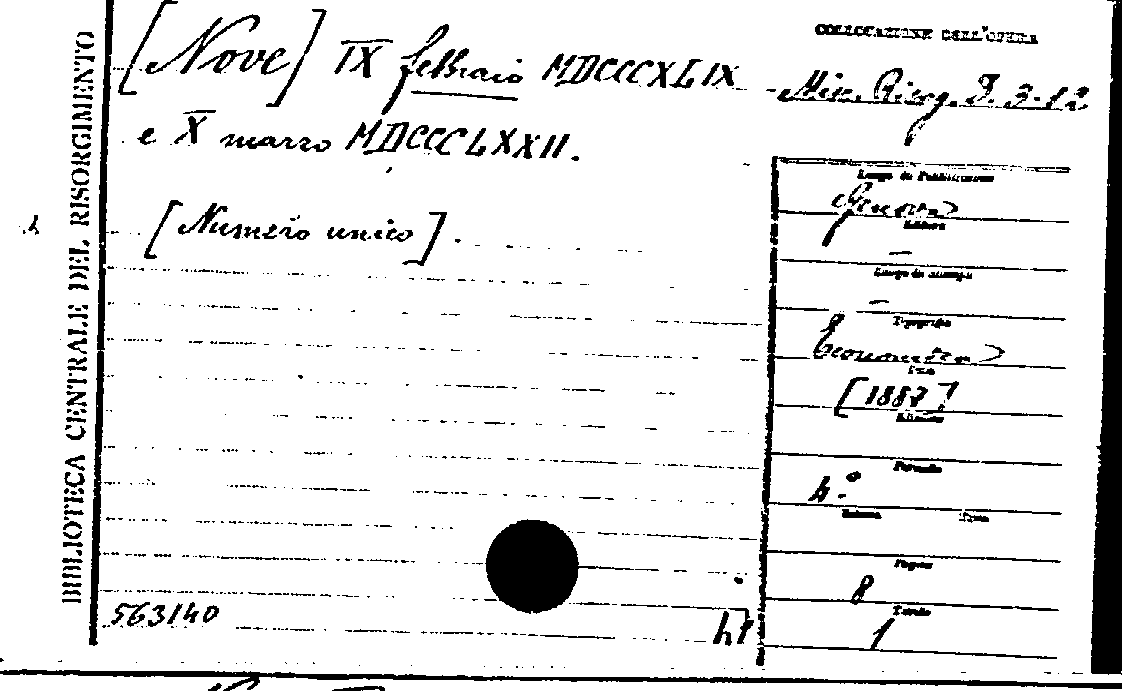 BIBLIOTECA CENTRALE DEL RISORGIMENTO
[Nove] IX febbraio MDCCCXLIX
e X marzo MDCCCLXXII.
[Numero unico].
563140
COLLOCAZIONE DELL'OPERA
Misc. Risorg. 3-12
Luogo di Pubblicazione
Genova
Editore
—
Luogo di stampa
—
Tipografia
Economica
Data
[1887]
Edizione
Formato
4.°
Volumi
Pagine
8
Tavole
1